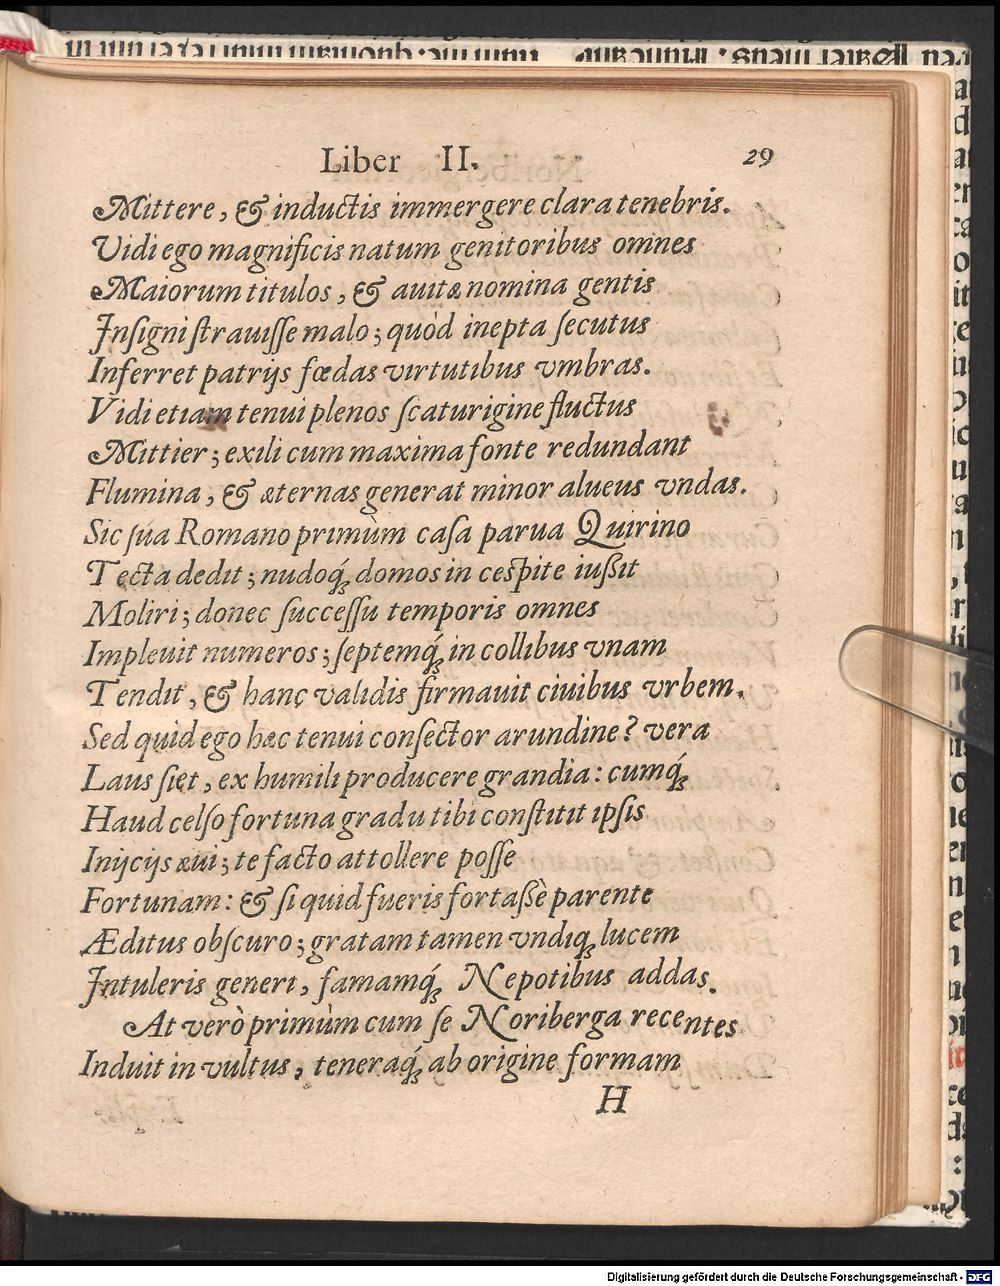 Liber II. 29
Mittere, & inductis immergere clara tenebris.
Vidi ego magnificis natum genitoribus omnes
Maiorum titulos, & auitæ nomina gentis
Insigni strauisse malo; quòd inepta secutus
Inferret patrijs fœdas virtutibus vmbras.
Vidi etiam tenui plenos scaturigine fluctus
Mittier; exili cum maxima fonte redundant
Flumina, & æternas generat minor alueus vndas.
Sic sua Romano primùm casa parua Quirino
Tecta dedit; nudoq́; domos in cespite iussit
Moliri; donec successu temporis omnes
Impleuit numeros; septemq́; in collibus vnam
Tendit, & hanc validis firmauit ciuibus vrbem.
Sed quid ego hæc tenui consector arundine? vera
Laus siet, ex humili producere grandia: cumq́;
Haud celso fortuna gradu tibi constitit ipsis
Inijcijs æui; te facto attollere posse
Fortunam: & si quid fueris fortassè parente
Æditus obscuro; gratam tamen vndiq; lucem
Intuleris generi, famamq́; Nepotibus addas.
At verò primùm cum se Noriberga recentes
Induit in vultus, teneraq́; ab origine formam
H
Digitalisierung gefördert durch die Deutsche Forschungsgemeinschaft - DFG